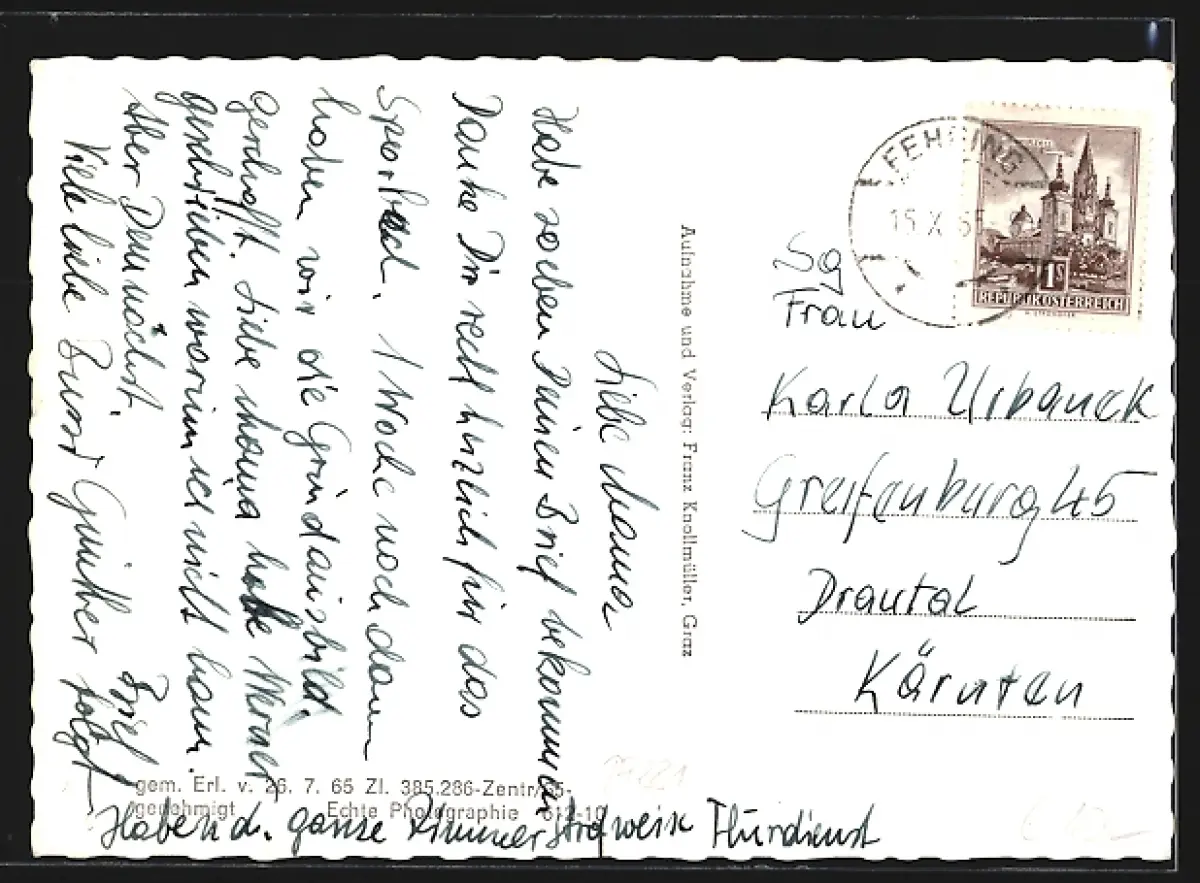 Liebe Mama
Habe soeben Deinen Brief bekommen
Danke Dir recht herzlich für das
Sportbad. 1 Woche noch dann
haben wir die Grundausbild.
geschafft. Liebe Mama habe Werner
geschrieben warum ich nicht kam.
Aber Demnächst. Brief
Viele liebe Bussi Günther folgt
Haben d. ganze Zimmer strafweise Flurdienst
gem. Erl. v. 26. 7. 65 Zl. 385.286-Zentr/65-
genehmigt Echte Photographie 612-10
Aufnahme und Verlag: Franz Knollmüller, Graz
FEHRING
15.X.65
1S
REPUBLIK ÖSTERREICH
Sg
Frau
Karla Urbanek
Greifenburg 45
Drautal
Kärnten